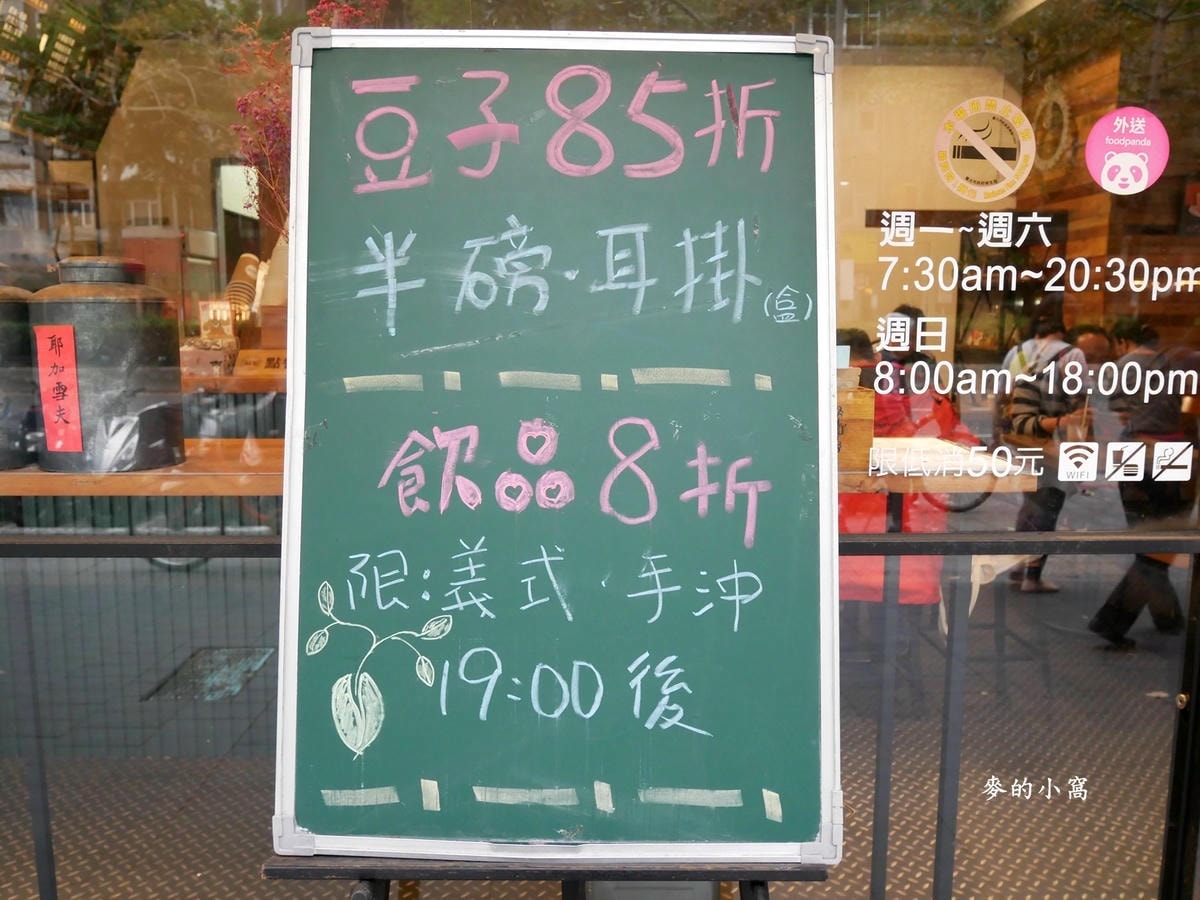 豆子85折
半磅·耳掛(盒)
飲品8折
限:義式·手沖
19:00後
耶加雪夫
外送
foodpanda
週一~週六
7:30am~20:30pm
週日
8:00am~18:00pm
限低消50元
WIFI
麥的小窩